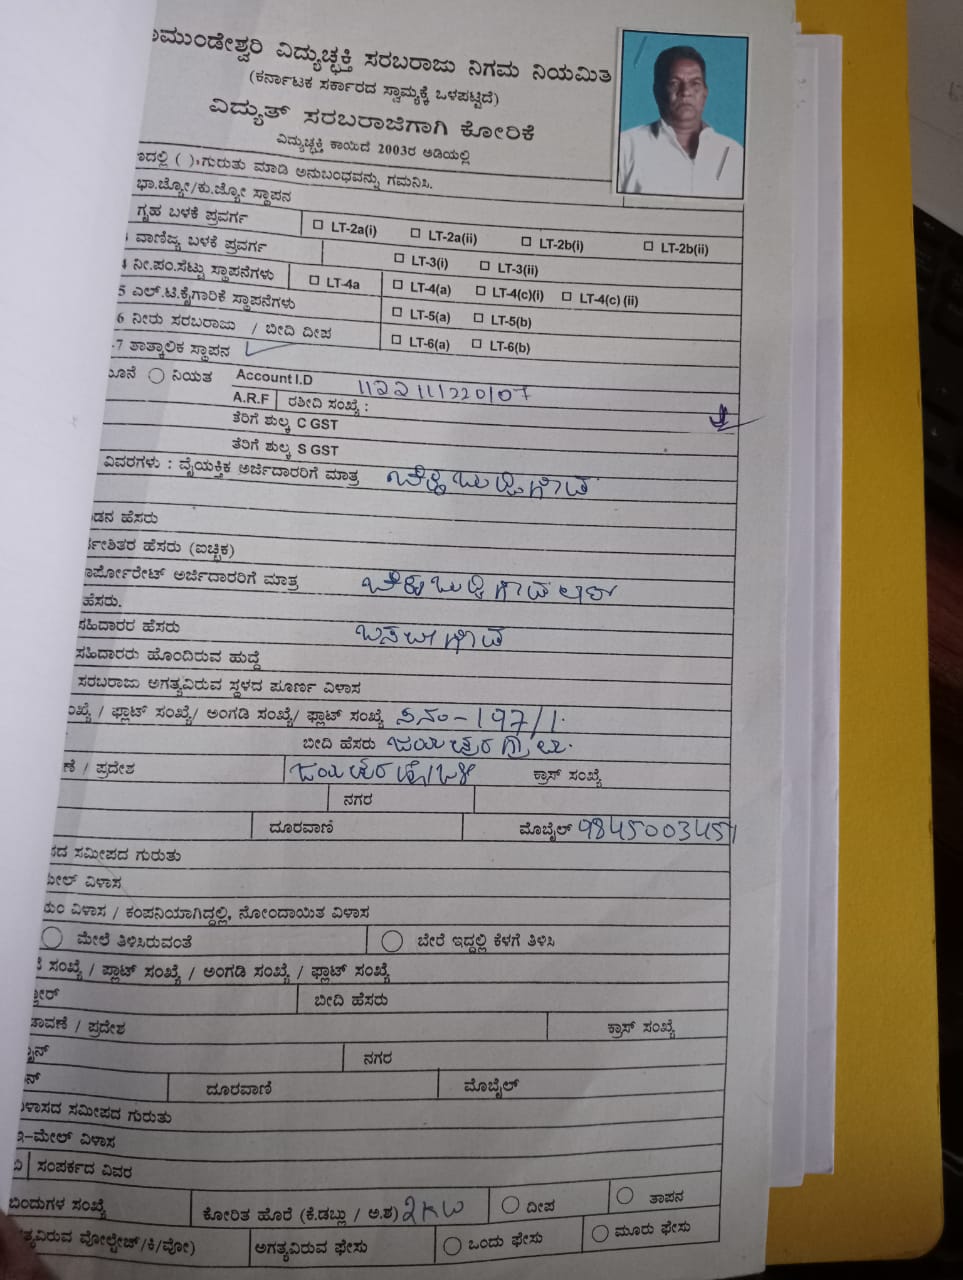 ಮುಂಡೇಶ್ವರಿ ವಿದ್ಯುಚ್ಛಕ್ತಿ ಸರಬರಾಜು ನಿಗಮ ನಿಯಮಿತ
(ಕರ್ನಾಟಕ ಸರ್ಕಾರದ ಸ್ವಾಮ್ಯಕ್ಕೆ ಒಳಪಟ್ಟಿದೆ)
ವಿದ್ಯುತ್ ಸರಬರಾಜಿಗಾಗಿ ಕೋರಿಕೆ
ವಿದ್ಯುಚ್ಛಕ್ತಿ ಕಾಯಿದೆ 2003ರ ಅಡಿಯಲ್ಲಿ
ದಲ್ಲಿ ( ),ಗುರುತು ಮಾಡಿ ಅನುಬಂಧವನ್ನು ಗಮನಿಸಿ.
ಭಾ.ಜ್ಯೋ/ಕು.ಜ್ಯೋ ಸ್ಥಾಪನ
ಗೃಹ ಬಳಕೆ ಪ್ರವರ್ಗ □ LT-2a(i) □ LT-2a(ii) □ LT-2b(i) □ LT-2b(ii)
ವಾಣಿಜ್ಯ ಬಳಕೆ ಪ್ರವರ್ಗ □ LT-3(i) □ LT-3(ii)
4 ನೀ.ಪಂ.ಸೆಟ್ಟು ಸ್ಥಾಪನೆಗಳು □ LT-4a □ LT-4(a) □ LT-4(c)(i) □ LT-4(c) (ii)
5 ಎಲ್.ಟಿ.ಕೈಗಾರಿಕೆ ಸ್ಥಾಪನೆಗಳು □ LT-5(a) □ LT-5(b)
6 ನೀರು ಸರಬರಾಜು / ಬೀದಿ ದೀಪ □ LT-6(a) □ LT-6(b)
-7 ತಾತ್ಕಾಲಿಕ ಸ್ಥಾಪನ
ಮೂನೆ ನಿಯತ Account I.D 11221111220107
A.R.F ರಶೀದಿ ಸಂಖ್ಯೆ :
ತೆರಿಗೆ ಶುಲ್ಕ C GST
ತೆರಿಗೆ ಶುಲ್ಕ S GST
ವಿವರಗಳು : ವೈಯಕ್ತಿಕ ಅರ್ಜಿದಾರರಿಗೆ ಮಾತ್ರ
ಡನ ಹೆಸರು
ಶಿತರ ಹೆಸರು (ಐಚ್ಛಿಕ)
ಾರ್ಪೋರೇಟ್ ಅರ್ಜಿದಾರರಿಗೆ ಮಾತ್ರ
ಹೆಸರು.
ಸಹಿದಾರರ ಹೆಸರು ಬಸವೇಗೌಡ
ಸಹಿದಾರರು ಹೊಂದಿರುವ ಹುದ್ದೆ
ಸರಬರಾಜು ಅಗತ್ಯವಿರುವ ಸ್ಥಳದ ಪೂರ್ಣ ವಿಳಾಸ
ಸಂಖ್ಯೆ / ಫ್ಲಾಟ್ ಸಂಖ್ಯೆ/ ಅಂಗಡಿ ಸಂಖ್ಯೆ/ ಫ್ಲಾಟ್ ಸಂಖ್ಯೆ ಸ.ನಂ-197/1.
ಬೀದಿ ಹೆಸರು ಜಯಪುರ ಗ್ರಾಮ.
ಣೆ / ಪ್ರದೇಶ ಜಯಪುರ ಹೋಬಳಿ ಕ್ರಾಸ್ ಸಂಖ್ಯೆ
ನಗರ
ದೂರವಾಣಿ ಮೊಬೈಲ್ 9845003451
ಸದ ಸಮೀಪದ ಗುರುತು
ಮೇಲ್ ವಿಳಾಸ
ವಿಳಾಸ / ಕಂಪನಿಯಾಗಿದ್ದಲ್ಲಿ, ನೋಂದಾಯಿತ ವಿಳಾಸ
ಮೇಲೆ ತಿಳಿಸಿರುವಂತೆ ಬೇರೆ ಇದ್ದಲ್ಲಿ ಕೆಳಗೆ ತಿಳಿಸಿ
ಸಂಖ್ಯೆ / ಪ್ಲಾಟ್ ಸಂಖ್ಯೆ / ಅಂಗಡಿ ಸಂಖ್ಯೆ / ಫ್ಲಾಟ್ ಸಂಖ್ಯೆ
ಬೀದಿ ಹೆಸರು
ಡಾವಣೆ / ಪ್ರದೇಶ ಕ್ರಾಸ್ ಸಂಖ್ಯೆ
ನಗರ
ದೂರವಾಣಿ ಮೊಬೈಲ್
ವಿಳಾಸದ ಸಮೀಪದ ಗುರುತು
ಇ-ಮೇಲ್ ವಿಳಾಸ
ಸಂಪರ್ಕದ ವಿವರ
ಬಿಂದುಗಳ ಸಂಖ್ಯೆ ಕೋರಿತ ಹೊರೆ (ಕೆ.ಡಬ್ಲು / ಅ.ಶ) 2KW ದೀಪ ತಾಪನ
ತ್ಯವಿರುವ ವೋಲ್ಟೇಜ್/ಕಿ/ವೋ) ಅಗತ್ಯವಿರುವ ಫೇಸು ಒಂದು ಫೇಸು ಮೂರು ಫೇಸು